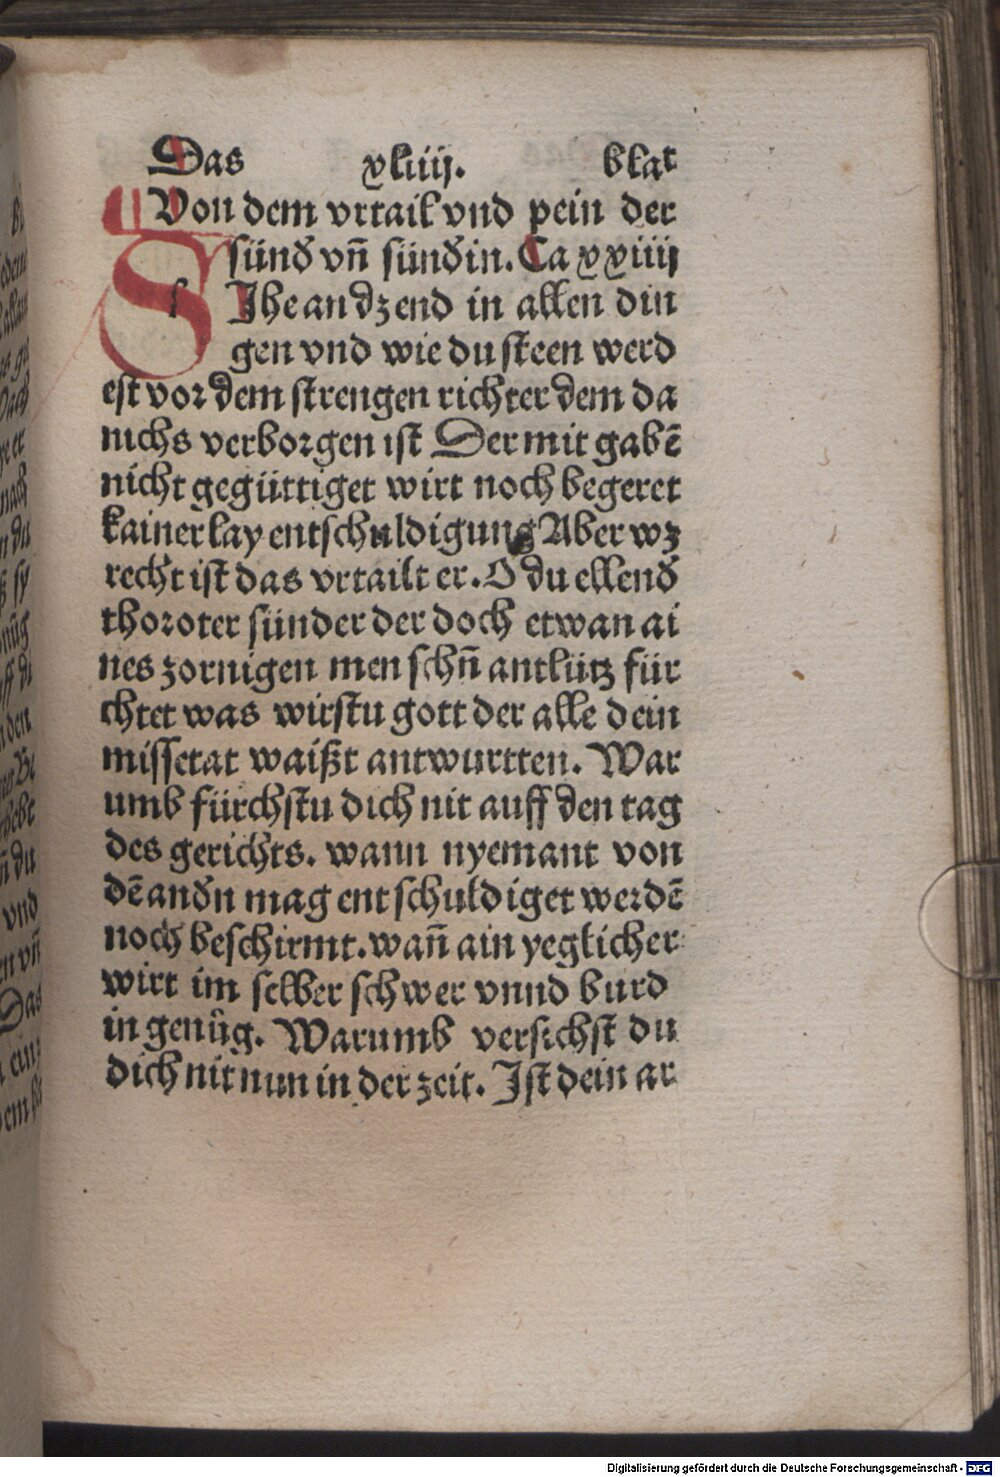 Das xliiij. blat
Von dem vrtail vnd pein der
sünd vn̄ sündin. Ca xxiiij
SIhe an dz end in allen din
gen vnd wie du steen werd
est vor dem strengen richter dem da
nichs verborgen ist Der mit gabē
nicht gegüttiget wirt noch begeret
kainerlay entschuldigung Aber wz
recht ist das vrtailt er. O du ellend
thoroter sünder der doch etwan ai
nes zornigen menschn̄ antlütz für
chtet was wirstu gott der alle dein
missetat waißt antwurtten. War
umb fürchstu dich nit auff den tag
des gerichts. wann nyemant von
dē andn mag entschuldiget werdē
noch beschirmt. wan̄ ain yeglicher
wirt im selber schwer vnnd burd
in genůg. Warumb versichst du
dich nit nun in der zeit. Ist dein ar
Digitalisierung gefördert durch die Deutsche Forschungsgemeinschaft - DFG